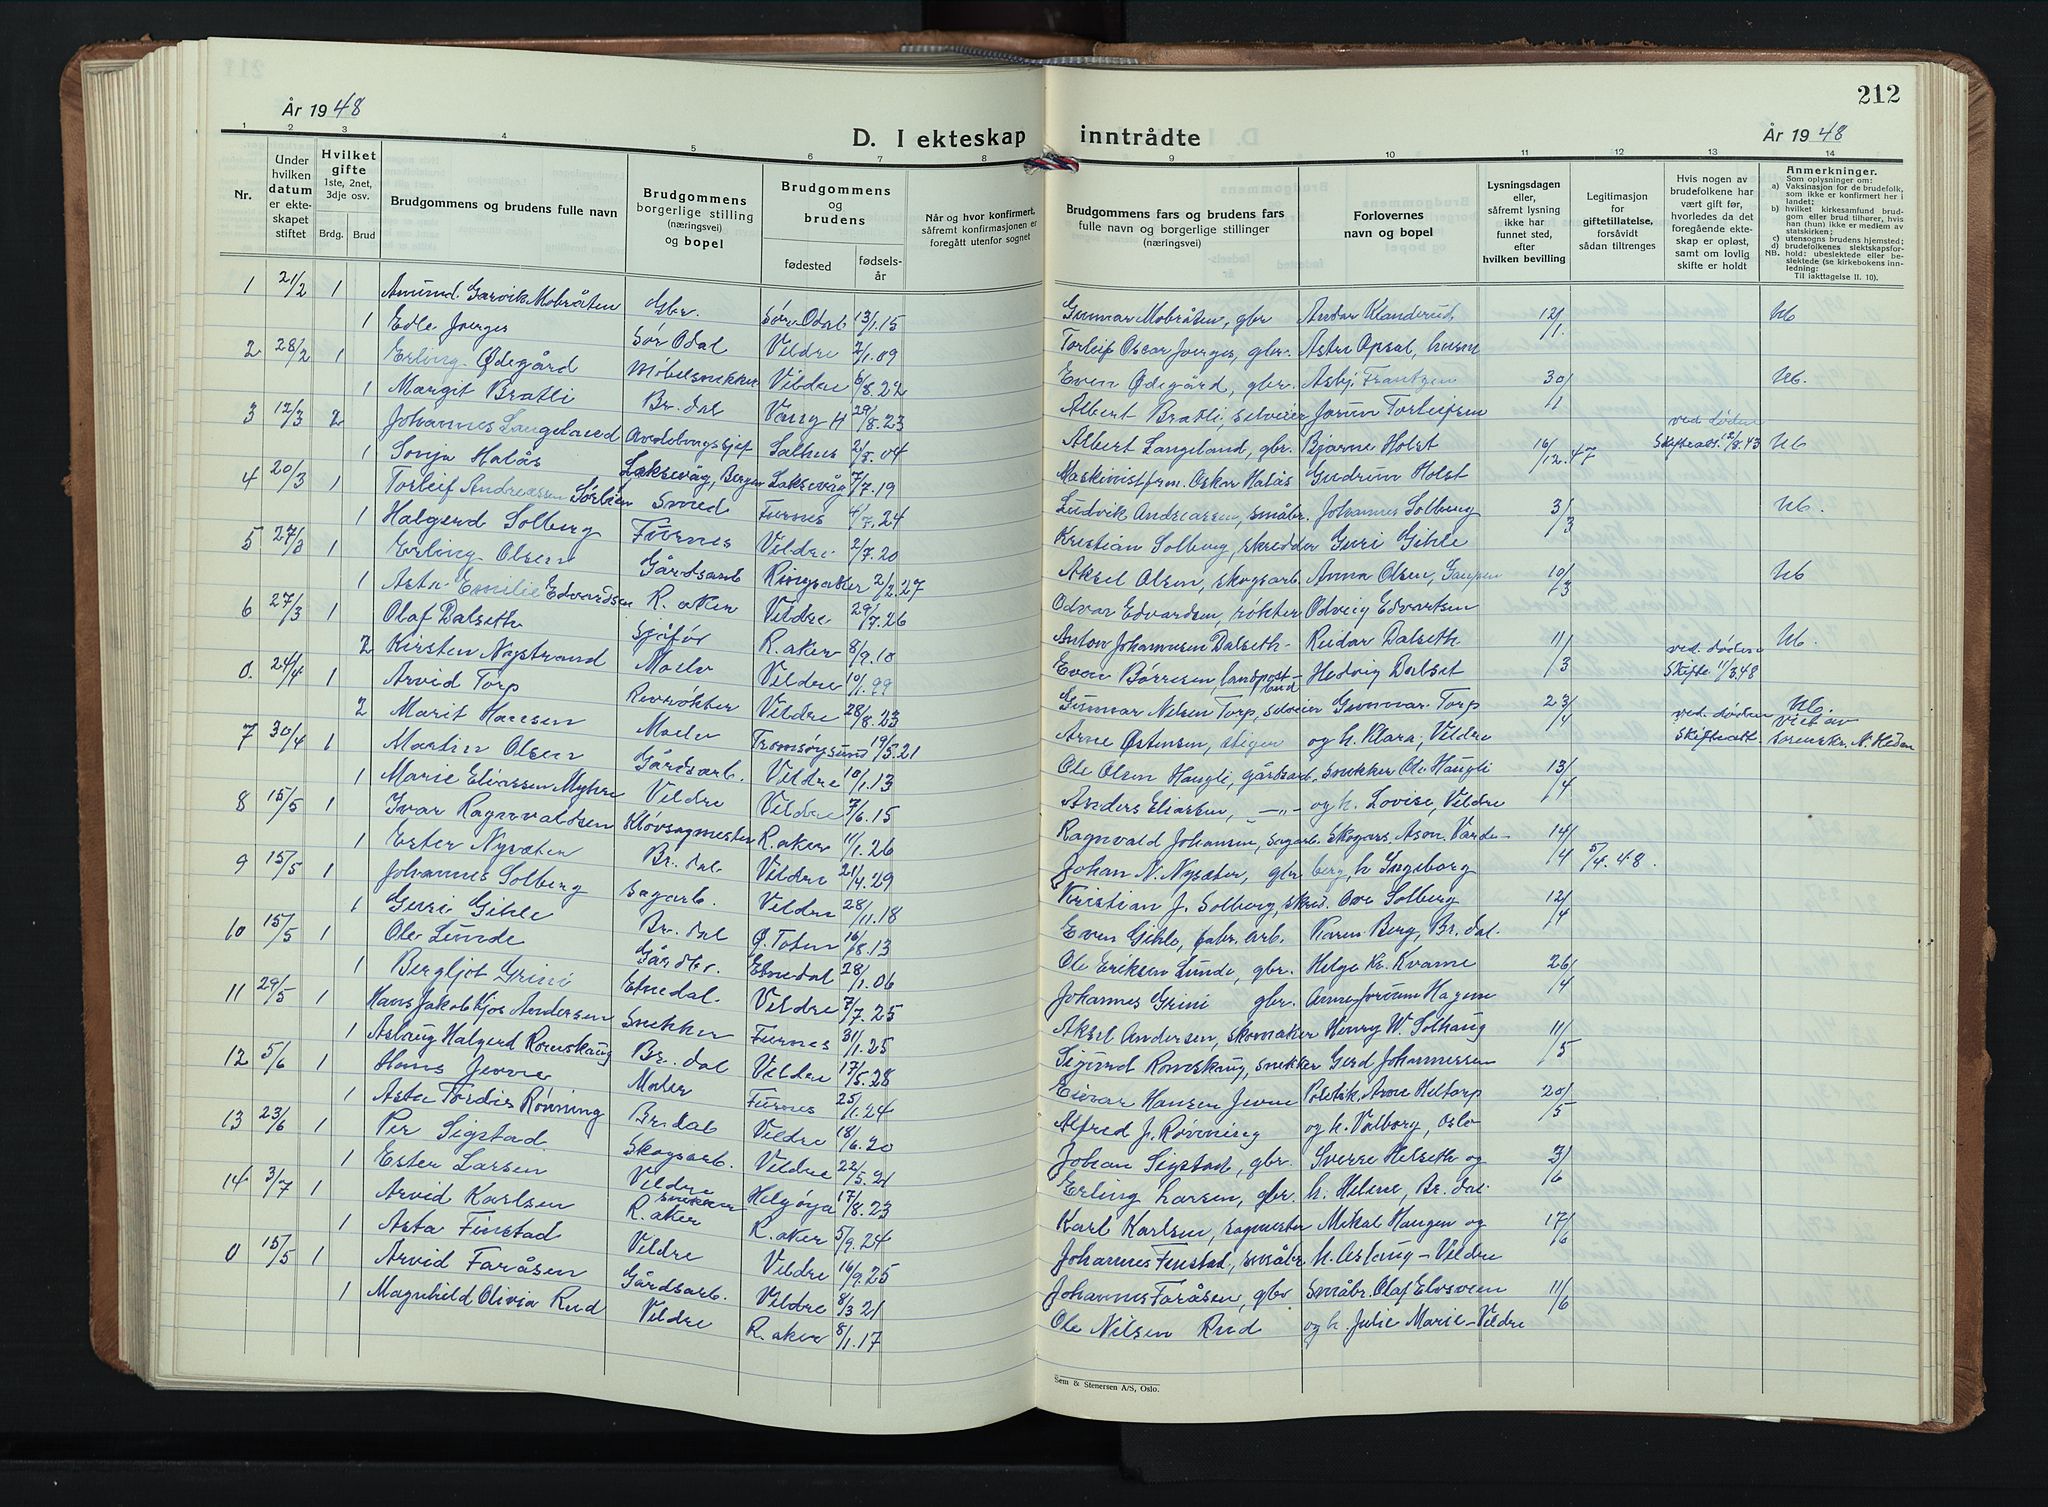 212
År 1948
D. I ekteskap inntrådte
År 1948
1 2 3 4 5 6 7 8 9 10 11 12 13 14
Nr.
Under hvilken datum er ekteskapet stiftet
Hvilket gifte 1ste, 2net, 3dje osv.
Brdg. Brud
Brudgommens og brudens fulle navn
Brudgommens borgerlige stilling (næringsvei) og bopel
Brudgommens og brudens
fødested
fødselsår
Når og hvor konfirmert, såfremt konfirmasjonen er foregått utenfor sognet
Brudgommens fars og brudens fars fulle navn og borgerlige stillinger (næringsvei)
Forlovernes navn og bopel
Lysningsdagen eller, såfremt lysning ikke har funnet sted, efter hvilken bevilling
Legitimasjon for giftetillatelse, forsåvidt sådan tiltrenges
Hvis nogen av brudefolkene har vært gift før, hvorledes da det foregående ekteskap er opløst, samt om lovlig skifte er holdt
Anmerkninger.
Som oplysninger om:
a) Vaksinasjon for de brudefolk, som ikke er konfirmert her i landet;
b) hvilket kirkesamfund brudgom eller brud tilhører, hvis han (hun) ikke er medlem av statskirken;
c) utensogns brudens hjemsted;
d) brudefolkenes slektskapsforhold: ubeslektede eller beslektede (se kirkebokens innledning:
NB. Til iakttagelse II. 10).
1 21/2 1 Amund Garvik Mobråten Gbr. Sør Odal 13/1.15 Gunnar Mobråten, gbr Andor Klanderud 12/1. Ub
1 Edle Joerges Sør Odal Veldre 2/1.09 Torleif Oscar Joerges, gbr. Astri Opsal, husm
2 28/2 1 Erling Ødegård Møbelsnekker Veldre 6/8.22 Even Ødegård, gbr. Asbj. Frantzen 30/1 Ub.
1 Margit Bratli Br.dal Vang H 29/8.23 Albert Bratli, selveier Jorun Torleifsen
3 12/3 2 Johannes Langeland Avdelingssjef Salhus 2/8.04 Albert Langeland, gbr. Bjarne Holst 16/12.47 ved døden Skifteatt. 12/8.43 Ub
1 Sonja Halås Laksevåg, Bergen Laksevåg 7/7.19 Maskinistfm. Oskar Halås Gudrun Holst
4 20/3 1 Torleif Andreassen Sørlien Smed Furnes 4/7.24 Ludvik Andreassen, småbr. Johannes Solberg 3/3 Ub.
1 Halgerd Solberg Furnes Veldre 2/7.20 Kristian Solberg, skredder Guri Gihle
5 27/3 1 Erling Olsen Gårdsarb Ringsaker 2/2.27 Aksel Olsen, skogsarb. Anna Olsen, Gaupen 10/3 Ub
1 Asta Emilie Edvardsen R.aker Veldre 29/7.26 Odvar Edvardsen, røkter Odveig Edvartsen
6 27/3 1 Olaf Dalseth Sjåfør R.aker 8/9.10 Anton Johannesen Dalseth Reidar Dalseth 11/3 ved døden Skifte. 11/3.48 Ub.
2 Kirsten Nystrand Moelv Veldre 10/1.99 Even Børresen, landpostbud Hedvig Dalset
0. 24/4 1 Arvid Torp Revrøkter Veldre 28/8.23 Gunnar Nilsen Torp, selveier Gunnar Torp 23/4 ved døden Skifteatt. Ub. viet av sorenskr. N. Heden
2 Marit Hansen Moelv Tromsøysund 19/5.21 Arne Østensen, stiger og h. Klara, Veldre
7 30/4 1 Martin Olsen Gårdsarb. Veldre 10/1.13 Ole Olsen Haugli, gårdsarb. Snekker Ole Haugli 13/4
1 Marie Eliassen Myhre Veldre Veldre 7/6.15 Anders Eliassen, -"- og h. Lovise, Veldre
8 15/5 1 Ivar Ragnvaldsen Kløvsagmester R.aker 11/1.26 Ragnvald Johansen, sagarb. Skogass. Ason Varde- 14/4 5/4.48.
1 Ester Nysæten Br.dal Veldre 21/4.29 Johan N. Nysæter, gbr berg, h Ingeborg
9 15/5 1 Johannes Solberg Sagarb. Veldre 28/11.18 Kristian J. Solberg, skred. Ove Solberg 12/4
1 Guri Gihle Br.dal Ø. Toten 16/8.13 Even Gihle, fabr. arb. Karen Berg, Br.dal.
10 15/5 1 Ole Lunde Gårdbr. Etnedal 28/1.06 Ole Eriksen Lunde, gbr. Helge Kr. Kvame 26/4
1 Bergljot Grini Etnedal Veldre 7/7.25 Johannes Grini gbr. Anne Jorunn Hagen
11 29/5 1 Hans Jakob Kjos Andersen Snekker Furnes 31/1.25 Aksel Andersen, skomaker Henry W. Solhaug 11/5
1 Aslaug Halgerd Romskaug Br.dal Veldre 17/5.28 Sigurd Romskaug, snekker Gerd Johannessen
12 5/6 1 Hans Jevne Maler Furnes 25/1.24 Einar Hansen Jevne Poletik. Arne Heltorp 20/5
1 Asta Tordis Rønning Br.dal Veldre 18/6.20 Alfred J. Rønning og h. Valborg, Oslo
13 23/6 1 Per Sigstad Skogsarb. Veldre 22/5.21 Johan Sigstad, gbr. Sverre Helseth og 3/6
1 Ester Larsen Veldre Helgøya 17/8.23 Erling Larsen, gbr. h. Helene, Br.dal.
14 3/7 1 Arvid Karlsen Snekker R.aker R.aker 5/9.24 Karl Karlsen, sagmester Mikal Haugen og 17/6
1 Asta Finstad Veldre Veldre 16/9.25 Johannes Finstad, småbr h. Aslaug - Veldre
0 15/5 1 Arvid Faråsen Gårdsarb. Veldre 8/3 21 Johannes Faråsen, gbr Småbr. Olaf Elvsveen 11/6
1 Magnhild Olivia Rud Veldre R.aker 8/1.17 Ole Nilsen Rud og h. Julie Marie - Veldre
Sem & Stenersen A/S, Oslo.